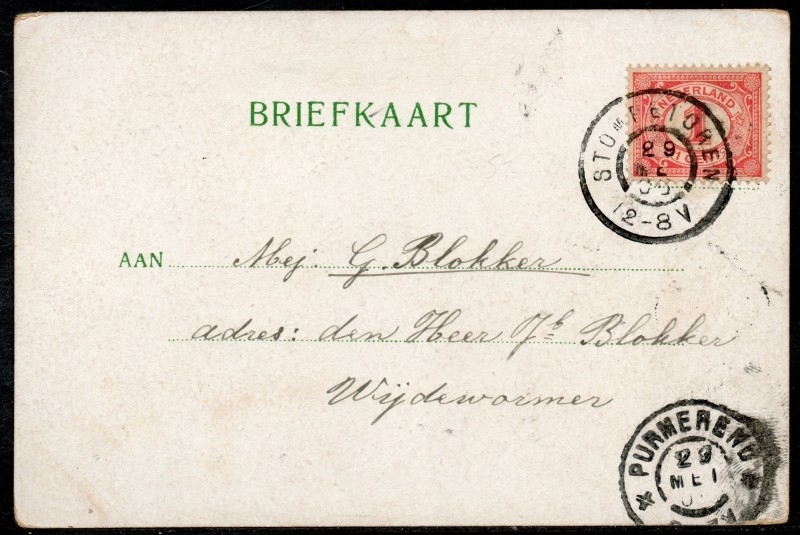 BRIEFKAART
NEDERLAND
1
STOMPETOREN
29
12-8V
AAN Mej. G. Blokker
adres: den Heer Jb Blokker
Wijdewormer
PURMEREND
29
MEI